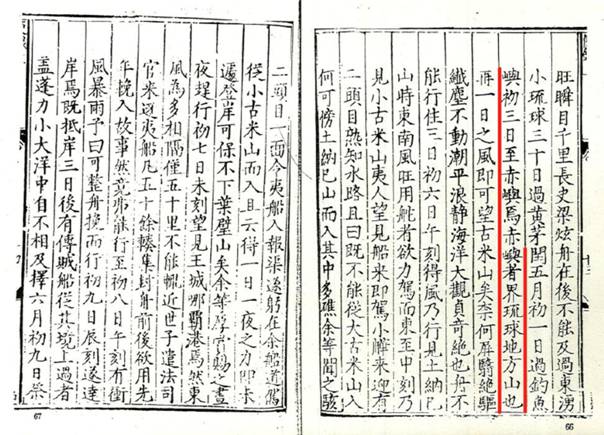 旺瞬目千里長史梁炫舟在後不能及過東湧
小琉球三十日過黃茅閏五月初一日過釣魚
嶼初三日至赤嶼焉赤嶼者界琉球地方山也
再一日之風即可望古米山矣奈何屏翳絕驅
纖塵不動潮平浪靜海洋大觀真奇絕也舟不
能行住三日初六日午刻得風乃行見土納巳
山時東南風旺用舵者欲力駕而東至申刻乃
見小古米山夷人望見船來即駕小艀來迎有
二頭目熟知水路且曰既不能從大古米山入
何可傍土納巳山而入其中多礁余等聞之駭
66
二頭目一面令夷船入報渠遂躬在余船道駕
從小古米山而入且云得一日一夜之力即未
遽登岸可保不下葉壁山矣余等厚賞賜之晝
夜趕行初七日未刻望見王城那霸港焉然東
風為多相隔僅五十里不能輒近世子遣法司
官來迎夷船凡五十餘轃集封舟前後欲用先
年挽入故事然竟弗能行至初八日午刻有衝
風暴雨予曰可整舟挽而行初九日辰刻遂達
岸焉既抵岸三日後有傳賊船從其境上過者
蓋蓬力小大洋中自不相及擇六月初九日祭
67